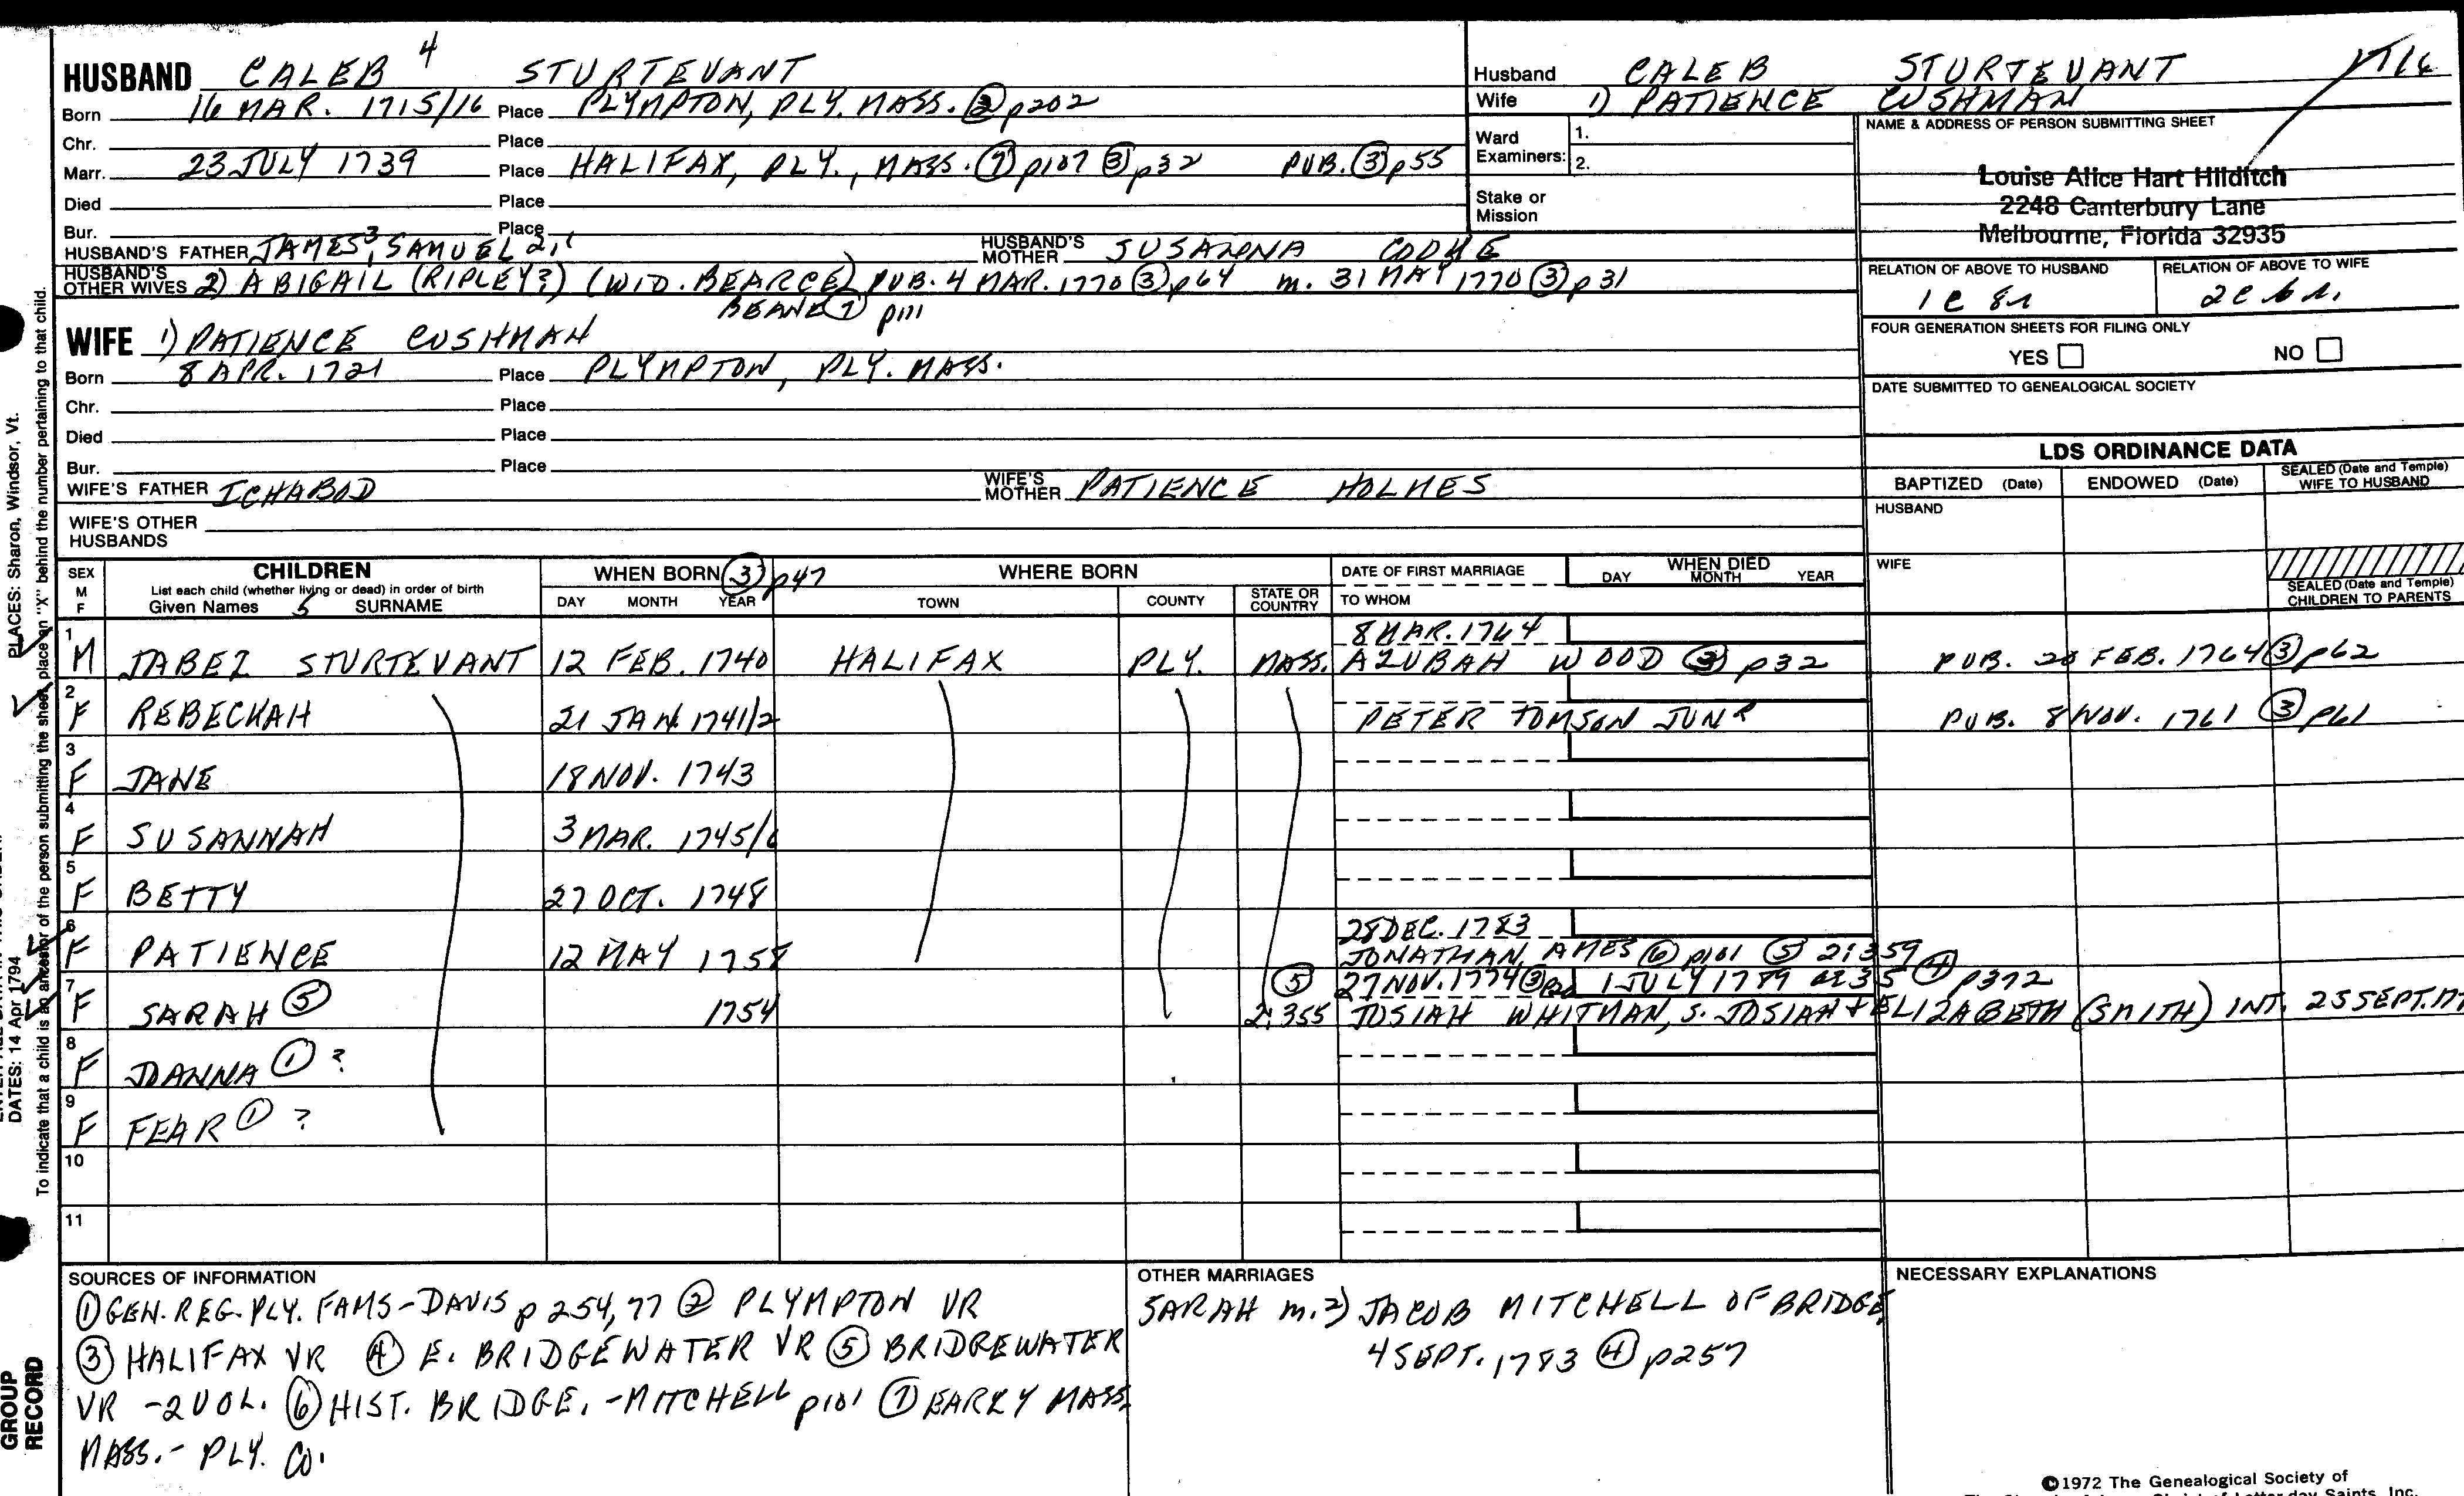 HUSBAND CALEB 4 STURTEVANT
Born 16 MAR. 1715/16 Place PLYMPTON, PLY. MASS. ② p202
Chr. Place
Marr. 23 JULY 1739 Place HALIFAX, PLY., MASS. ⑦ p107 ③ p32 PUB. ③ p55
Died Place
Bur. Place
HUSBAND'S FATHER JAMES 3, SAMUEL 2,1 HUSBAND'S MOTHER SUSANNA COOKE
HUSBAND'S OTHER WIVES 2) ABIGAIL (RIPLEY?) (WID. BEARCE) PUB. 4 MAR. 1770 ③ p64 m. 31 MAY 1770 ③ p31
BEANE ⑦ p111
WIFE 1) PATIENCE CUSHMAN
Born 8 APR. 1721 Place PLYMPTON, PLY. MASS.
Chr. Place
Died Place
Bur. Place
WIFE'S FATHER ICHABOD WIFE'S MOTHER PATIENCE HOLMES
WIFE'S OTHER HUSBANDS
Husband CALEB STURTEVANT
Wife 1) PATIENCE CUSHMAN
Ward Examiners: 1.
2.
Stake or Mission
NAME & ADDRESS OF PERSON SUBMITTING SHEET
Louise Alice Hart Hilditch
2248 Canterbury Lane
Melbourne, Florida 32935
RELATION OF ABOVE TO HUSBAND RELATION OF ABOVE TO WIFE
1 C 8 r 2 C 6 r.
FOUR GENERATION SHEETS FOR FILING ONLY
YES NO
DATE SUBMITTED TO GENEALOGICAL SOCIETY
LDS ORDINANCE DATA
BAPTIZED (Date) ENDOWED (Date) SEALED (Date and Temple) WIFE TO HUSBAND
HUSBAND
WIFE
SEALED (Date and Temple) CHILDREN TO PARENTS
SEX M F CHILDREN WHEN BORN ③ p47 WHERE BORN DATE OF FIRST MARRIAGE WHEN DIED
List each child (whether living or dead) in order of birth
Given Names 5 SURNAME DAY MONTH YEAR TOWN COUNTY STATE OR COUNTRY TO WHOM DAY MONTH YEAR
8 MAR. 1764
1 M JABEZ STURTEVANT 12 FEB. 1740 HALIFAX PLY. MASS. AZUBAH WOOD ③ p32 PUB. 20 FEB. 1764 ③ p62
2 F REBECKAH 21 JAN. 1741/2 PETER TOMSON JUNR PUB. 8 NOV. 1761 ③ p61
3 F JANE 18 NOV. 1743
4 F SUSANNAH 3 MAR. 1745/6
5 F BETTY 27 OCT. 1748
28 DEC. 1783
6 F PATIENCE 12 MAY 1758 JONATHAN AMES ⑥ p101 ⑤ 2:359
⑤ 27 NOV. 1774 ③ 1 JULY 1789 ae 35 ④ p372
7 F SARAH ⑤ 1754 2:355 JOSIAH WHITMAN, S. JOSIAH + ELIZABETH (SMITH) INT. 25 SEPT.
8 F JOANNA ① ?
9 F FEAR ① ?
10
11
SOURCES OF INFORMATION
① GEN. REG. PLY. FAMS - DAVIS p 254, 77 ② PLYMPTON VR
③ HALIFAX VR ④ E. BRIDGEWATER VR ⑤ BRIDGEWATER
VR - 2 VOL. ⑥ HIST. BRIDGE. - MITCHELL p101 ⑦ EARLY MASS.
MASS. - PLY. CO.
OTHER MARRIAGES
SARAH m. 2) JACOB MITCHELL OF BRIDGE.
4 SEPT. 1783 ④ p257
NECESSARY EXPLANATIONS
©1972 The Genealogical Society of
PLACES: Sharon, Windsor, Vt.
DATES: 14 Apr 1794
To indicate that a child is an ancestor of the person submitting the sheet, place an "X" behind the number pertaining to that child.
GROUP RECORD